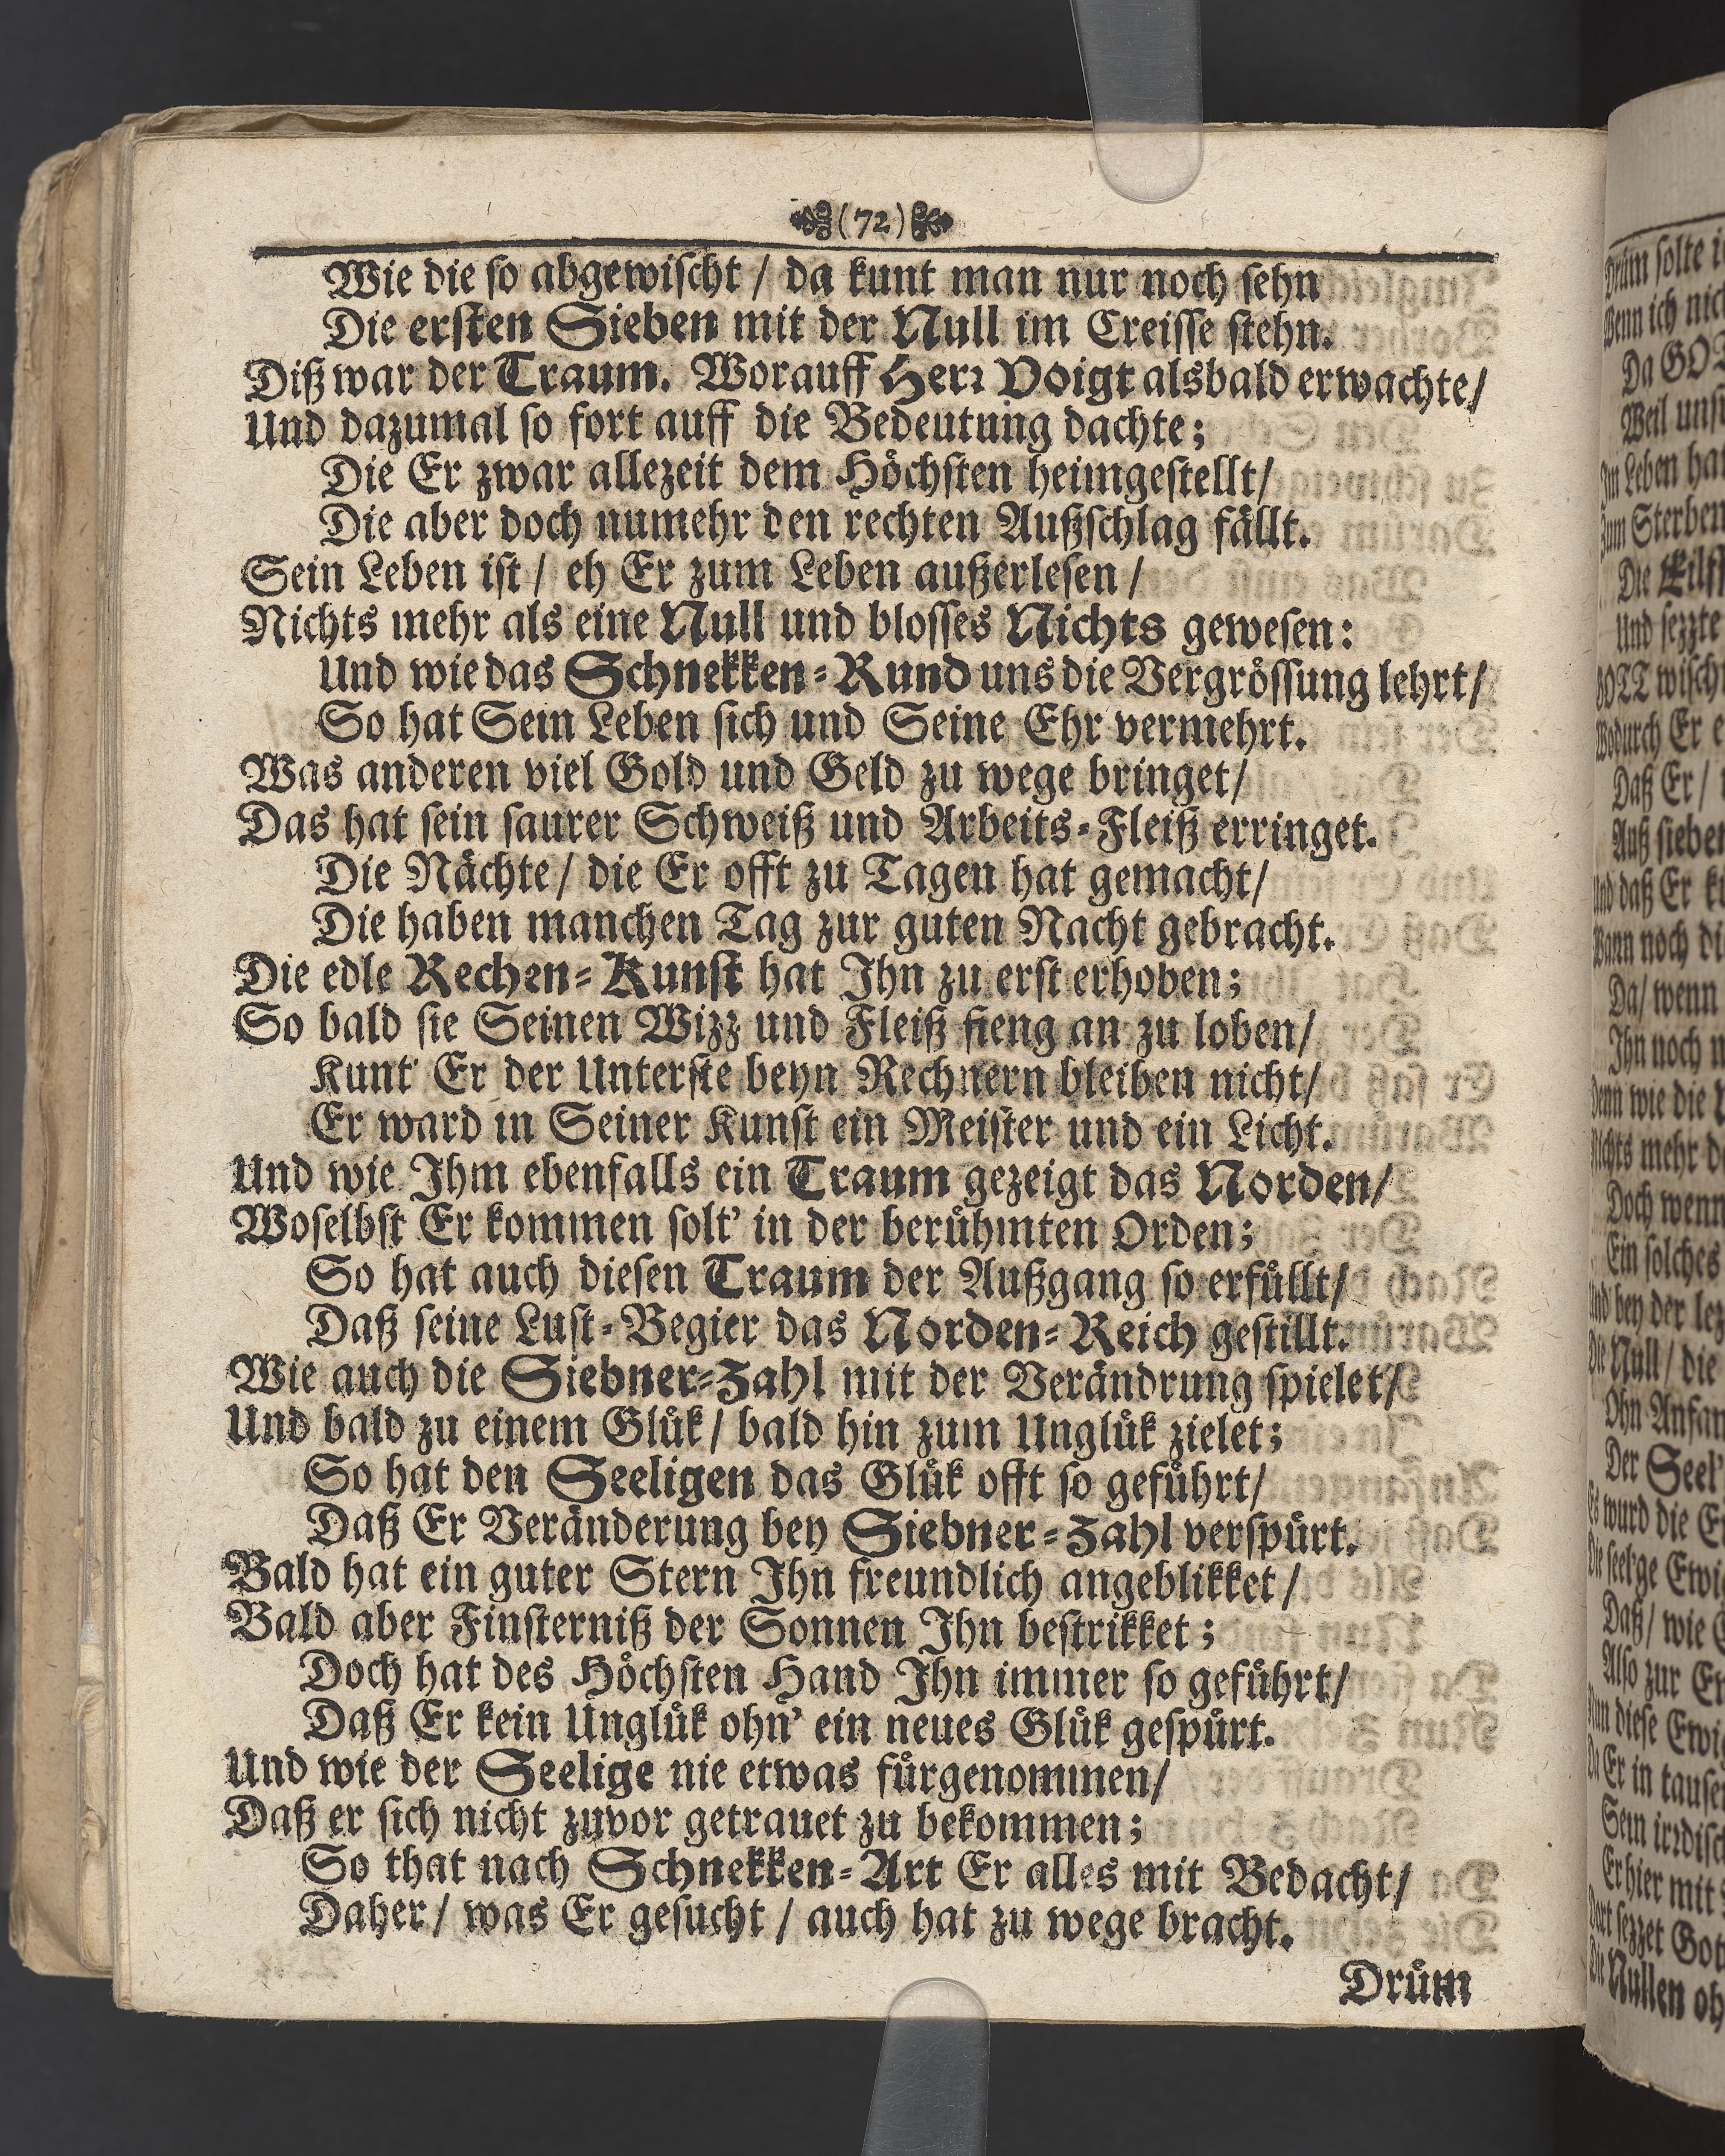 (72)
Wie die so abgewischt / da kunt man nur noch sehn
Die ersten Sieben mit der Null im Creisse stehn.
Diß war der Traum. Worauff Herr Voigt alsbald erwachte/
Und dazumal so fort auff die Bedeutung dachte;
Die Er zwar allezeit dem Höchsten heimgestellt/
Die aber doch numehr den rechten Außschlag fällt.
Sein Leben ist / eh Er zum Leben außerlesen /
Nichts mehr als eine Null und blosses Nichts gewesen:
Und wie das Schnekken-Rund uns die Vergrössung lehrt/
So hat Sein Leben sich und Seine Ehr vermehrt.
Was anderen viel Gold und Geld zu wege bringet/
Das hat sein saurer Schweiß und Arbeits-Fleiß erringet.
Die Nächte / die Er offt zu Tagen hat gemacht/
Die haben manchen Tag zur guten Nacht gebracht.
Die edle Rechen-Kunst hat Ihn zu erst erhoben;
So bald sie Seinen Wizz und Fleiß fieng an zu loben/
Kunt' Er der Unterste beyn Rechnern bleiben nicht/
Er ward in Seiner Kunst ein Meister und ein Licht.
Und wie Ihm ebenfalls ein Traum gezeigt das Norden/
Woselbst Er kommen solt' in der berühmten Orden;
So hat auch diesen Traum der Außgang so erfüllt/
Daß seine Lust-Begier das Norden-Reich gestillt.
Wie auch die Siebner-Zahl mit der Verändrung spielet/
Und bald zu einem Glük / bald hin zum Unglük zielet;
So hat den Seeligen das Glük offt so geführt/
Daß Er Veränderung bey Siebner-Zahl verspürt.
Bald hat ein guter Stern Ihn freundlich angeblikket /
Bald aber Finsterniß der Sonnen Ihn bestrikket;
Doch hat des Höchsten Hand Ihn immer so geführt/
Daß Er kein Unglük ohn' ein neues Glük gespürt.
Und wie der Seelige nie etwas fürgenommen/
Daß er sich nicht zuvor getrauet zu bekommen;
So that nach Schnekken-Art Er alles mit Bedacht/
Daher / was Er gesucht / auch hat zu wege bracht.
Drüm
Drüm solte
Wenn ich
Da
Weil
Im Leben
Zum Sterben
Die
Und sezzte
GOTT
Wodurch Er
Daß Er /
Auß
Und daß Er
Wann noch
Da / wenn
Ihn noch
Denn wie die
Nichts mehr
Doch wenn
Ein solches
Und bey der
Die Null / die
Ohn
Der Seel'
Es wurd die
Die seel'ge
Daß / wie
Also zur
Nun diese
Da Er in
Sein
Er hier mit
Dort sezzet
Die Nullen